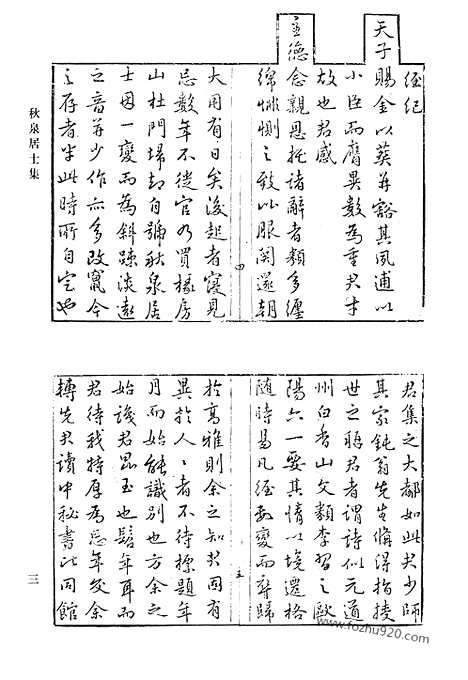 經紀
天子賜金以葬并豁其夙逋以
小臣而膺異數為重君才
故也君感
主德念親恩托諸辭者類多纏
綿悱惻之致以服闋還朝
四
大用有日矣後起者寖見
忌數年不徙官乃買椽房
山杜門埽却自號秋泉居
士因一變而為斜疎淡遠
之音并少作亦多改竄今
之存者半此時所自定也
秋泉居士集
君集之大都如此君少師
其家鈍翁先生備得指授
世之聽君者謂詩似元道
州白香山文類李習之歐
陽六一要其情以境遷格
隨時易凡經數變而歸
五
於高雅則余之知君固有
異於人人者不待標題年
月而始能識別也方余之
始識君也髫年耳而
君待我特厚為忘年交余
轉先君讀中秘書比同館
三
www.fozhu920.com